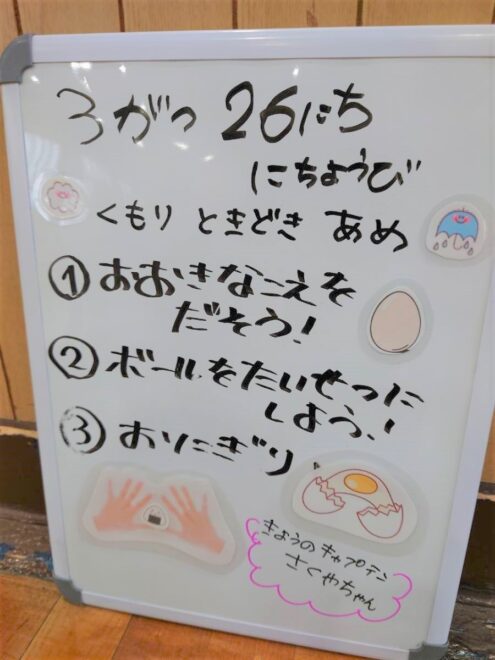 3がつ 26にち
にちようび
くもり ときどき あめ
① おおきなこえを
だそう!
② ボールをたいせつに
しよう!
③ おにぎり
きょうのキャプテン
さくやちゃん